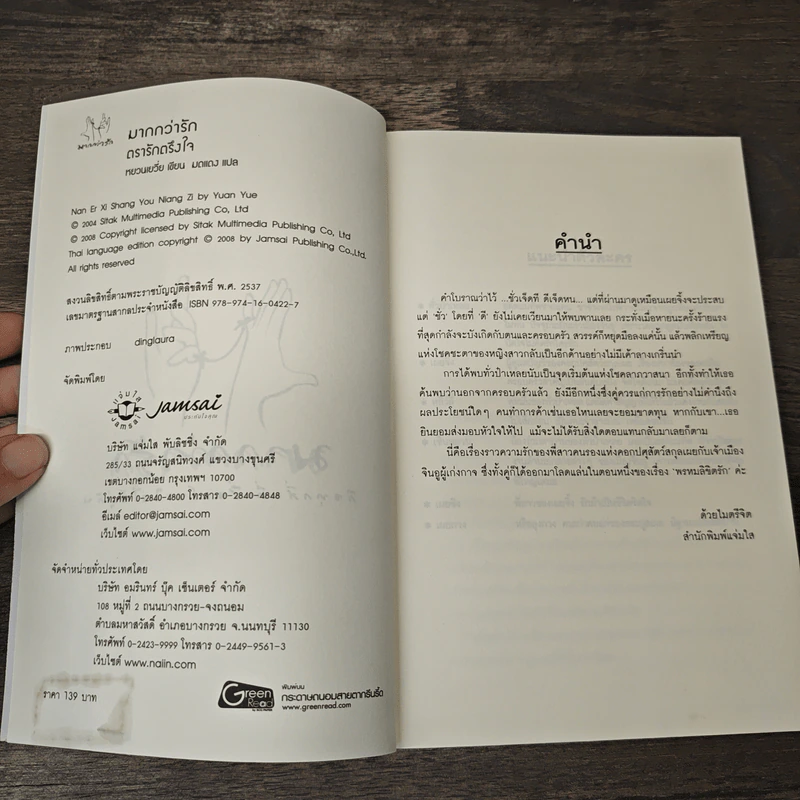 มากกว่ารัก
มากกว่ารัก
ตรารักตรึงใจ
หยวนเยวี่ย เขียน มดแดง แปล
Nan Er Xi Shang You Niang Zi by Yuan Yue
© 2004 Sitak Multimedia Publishing Co., Ltd
© 2008 Copyright licensed by Sitak Multimedia Publishing Co, Ltd
Thai language edition copyright © 2008 by Jamsai Publishing Co.,Ltd.
All rights reserved
สงวนลิขสิทธิ์ตามพระราชบัญญัติลิขสิทธิ์ พ.ศ. 2537
เลขมาตรฐานสากลประจำหนังสือ ISBN 978-974-16-0422-7
ภาพประกอบ dinglaura
จัดพิมพ์โดย
แจ่มใส
jamsai
Jamsai
บริษัท แจ่มใส พับลิชชิ่ง จำกัด
285/33 ถนนจรัญสนิทวงศ์ แขวงบางขุนศรี
เขตบางกอกน้อย กรุงเทพฯ 10700
โทรศัพท์ 0-2840-4800 โทรสาร 0-2840-4848
อีเมล์ editor@jamsai.com
เว็บไซต์ www.jamsai.com
จัดจำหน่ายทั่วประเทศโดย
บริษัท อมรินทร์ บุ๊ค เซ็นเตอร์ จำกัด
108 หมู่ที่ 2 ถนนบางกรวย-จงถนอม
ตำบลมหาสวัสดิ์ อำเภอบางกรวย จ.นนทบุรี 11130
โทรศัพท์ 0-2423-9999 โทรสาร 0-2449-9561-3
เว็บไซต์ www.naiin.com
ราคา 139 บาท
Green Read
พิมพ์บน
กระดาษถนอมสายตากรีนรี้ด
www.greenread.com
คำนำ
คำโบราณว่าไว้ ...ชั่วเจ็ดที ดีเจ็ดหน... แต่ที่ผ่านมาดูเหมือนเผยจิ้งจะประสบ
แต่ 'ชั่ว' โดยที่ 'ดี' ยังไม่เคยเวียนมาให้พบพานเลย กระทั่งเมื่อหายนะครั้งร้ายแรง
ที่สุดกำลังจะบังเกิดกับตนและครอบครัว สวรรค์ก็หยุดมือลงแค่นั้น แล้วพลิกเหรียญ
แห่งโชคชะตาของหญิงสาวกลับเป็นอีกด้านอย่างไม่มีเค้าลางเกริ่นนำ
การได้พบทั่วป๋าเหลยนับเป็นจุดเริ่มต้นแห่งโชคลาภวาสนา อีกทั้งทำให้เธอ
ค้นพบว่านอกจากครอบครัวแล้ว ยังมีอีกหนึ่งซึ่งคู่ควรแก่การรักอย่างไม่คำนึงถึง
ผลประโยชน์ใดๆ คนทำการค้าเช่นเธอไหนเลยจะยอมขาดทุน หากกับเขา...เธอ
ยินยอมส่งมอบหัวใจให้ไป แม้จะไม่ได้รับสิ่งใดตอบแทนกลับมาเลยก็ตาม
นี่คือเรื่องราวความรักของพี่สาวคนรองแห่งคอกปศุสัตว์สกุลเผยกับเจ้าเมือง
จินอูผู้เก่งกาจ ซึ่งทั้งคู่ก็ได้ออกมาโลดแล่นในตอนหนึ่งของเรื่อง 'พรหมลิขิตรัก' ค่ะ
ด้วยไมตรีจิต
สำนักพิมพ์แจ่มใส